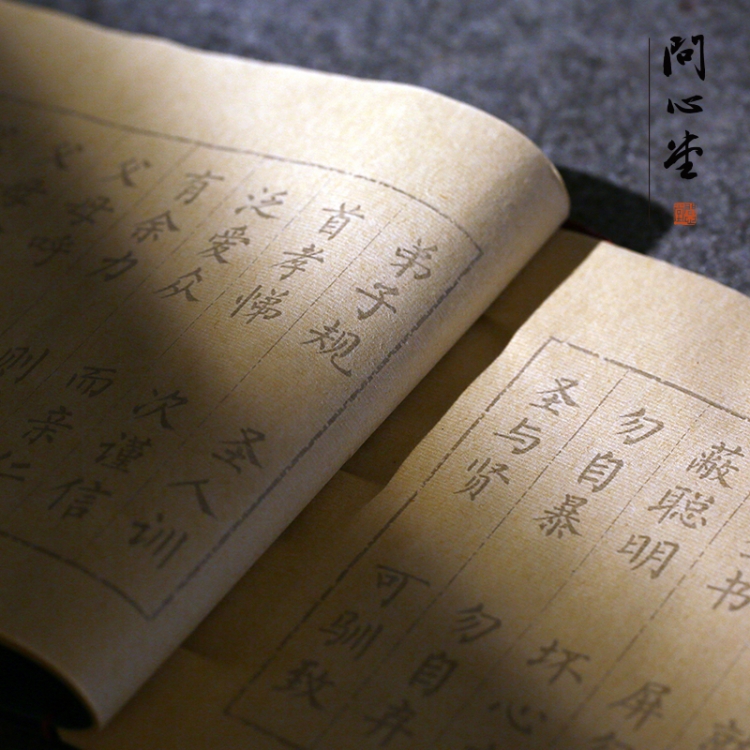 問心堂
書
弟子规 圣人训
首孝悌 次谨信
泛爱众 而亲仁
有余力 则
父母呼
父母
书 屏
蔽聪明 坏心
勿自暴 勿自弃
圣与贤 可驯致